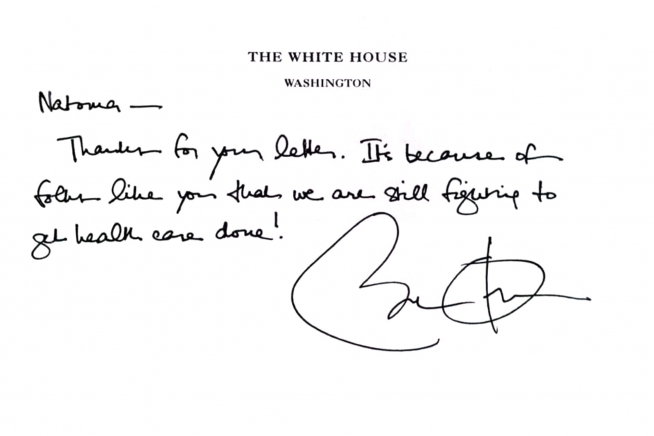 THE WHITE HOUSE
WASHINGTON
Natoma —
Thanks for your letter. It's because of
folks like you that we are still fighting to
get health care done!